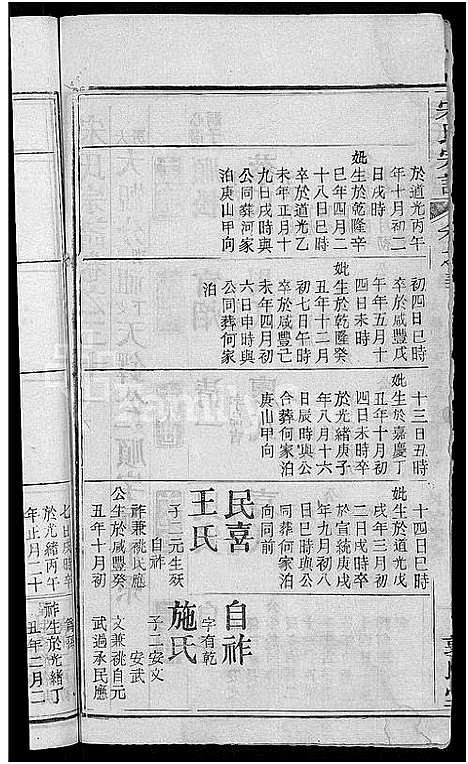 宋氏宗譜
於道光丙午
年十月初二
日戌時
妣生於乾隆辛
巳年四月二
十八日巳時
卒於道光乙
未年正月十
九日戌時與
公同葬何家
泊庚山甲向
初四日巳時
卒於咸豐戊
午年五月十
四日未時
妣生於乾隆癸
丑年十二月
初七日午時
卒於咸豐己
未年四月初
六日申時與
公同葬何家
泊
十三日丑時
妣生於嘉慶丁
丑年十月初
四日未時卒
於光緒庚子
年八月十六
日辰時與公
合葬何家泊
庚山甲向
十四日巳時
妣生於道光戊
戌年三月初
二日戌時卒
於宣統庚戌
年九月初八
日巳時與公
同葬何家泊
向同前
民喜
王氏
子二元生殀
自祚
祚兼祧民應
公生於咸豐癸
丑年十月初
自祚
字有乾
施氏
子二安文
安武
文兼祧自元
武過承民應
七日戌時卒
於光緒丙午
年正月二十
祚生於光緒丁
丑年二月二